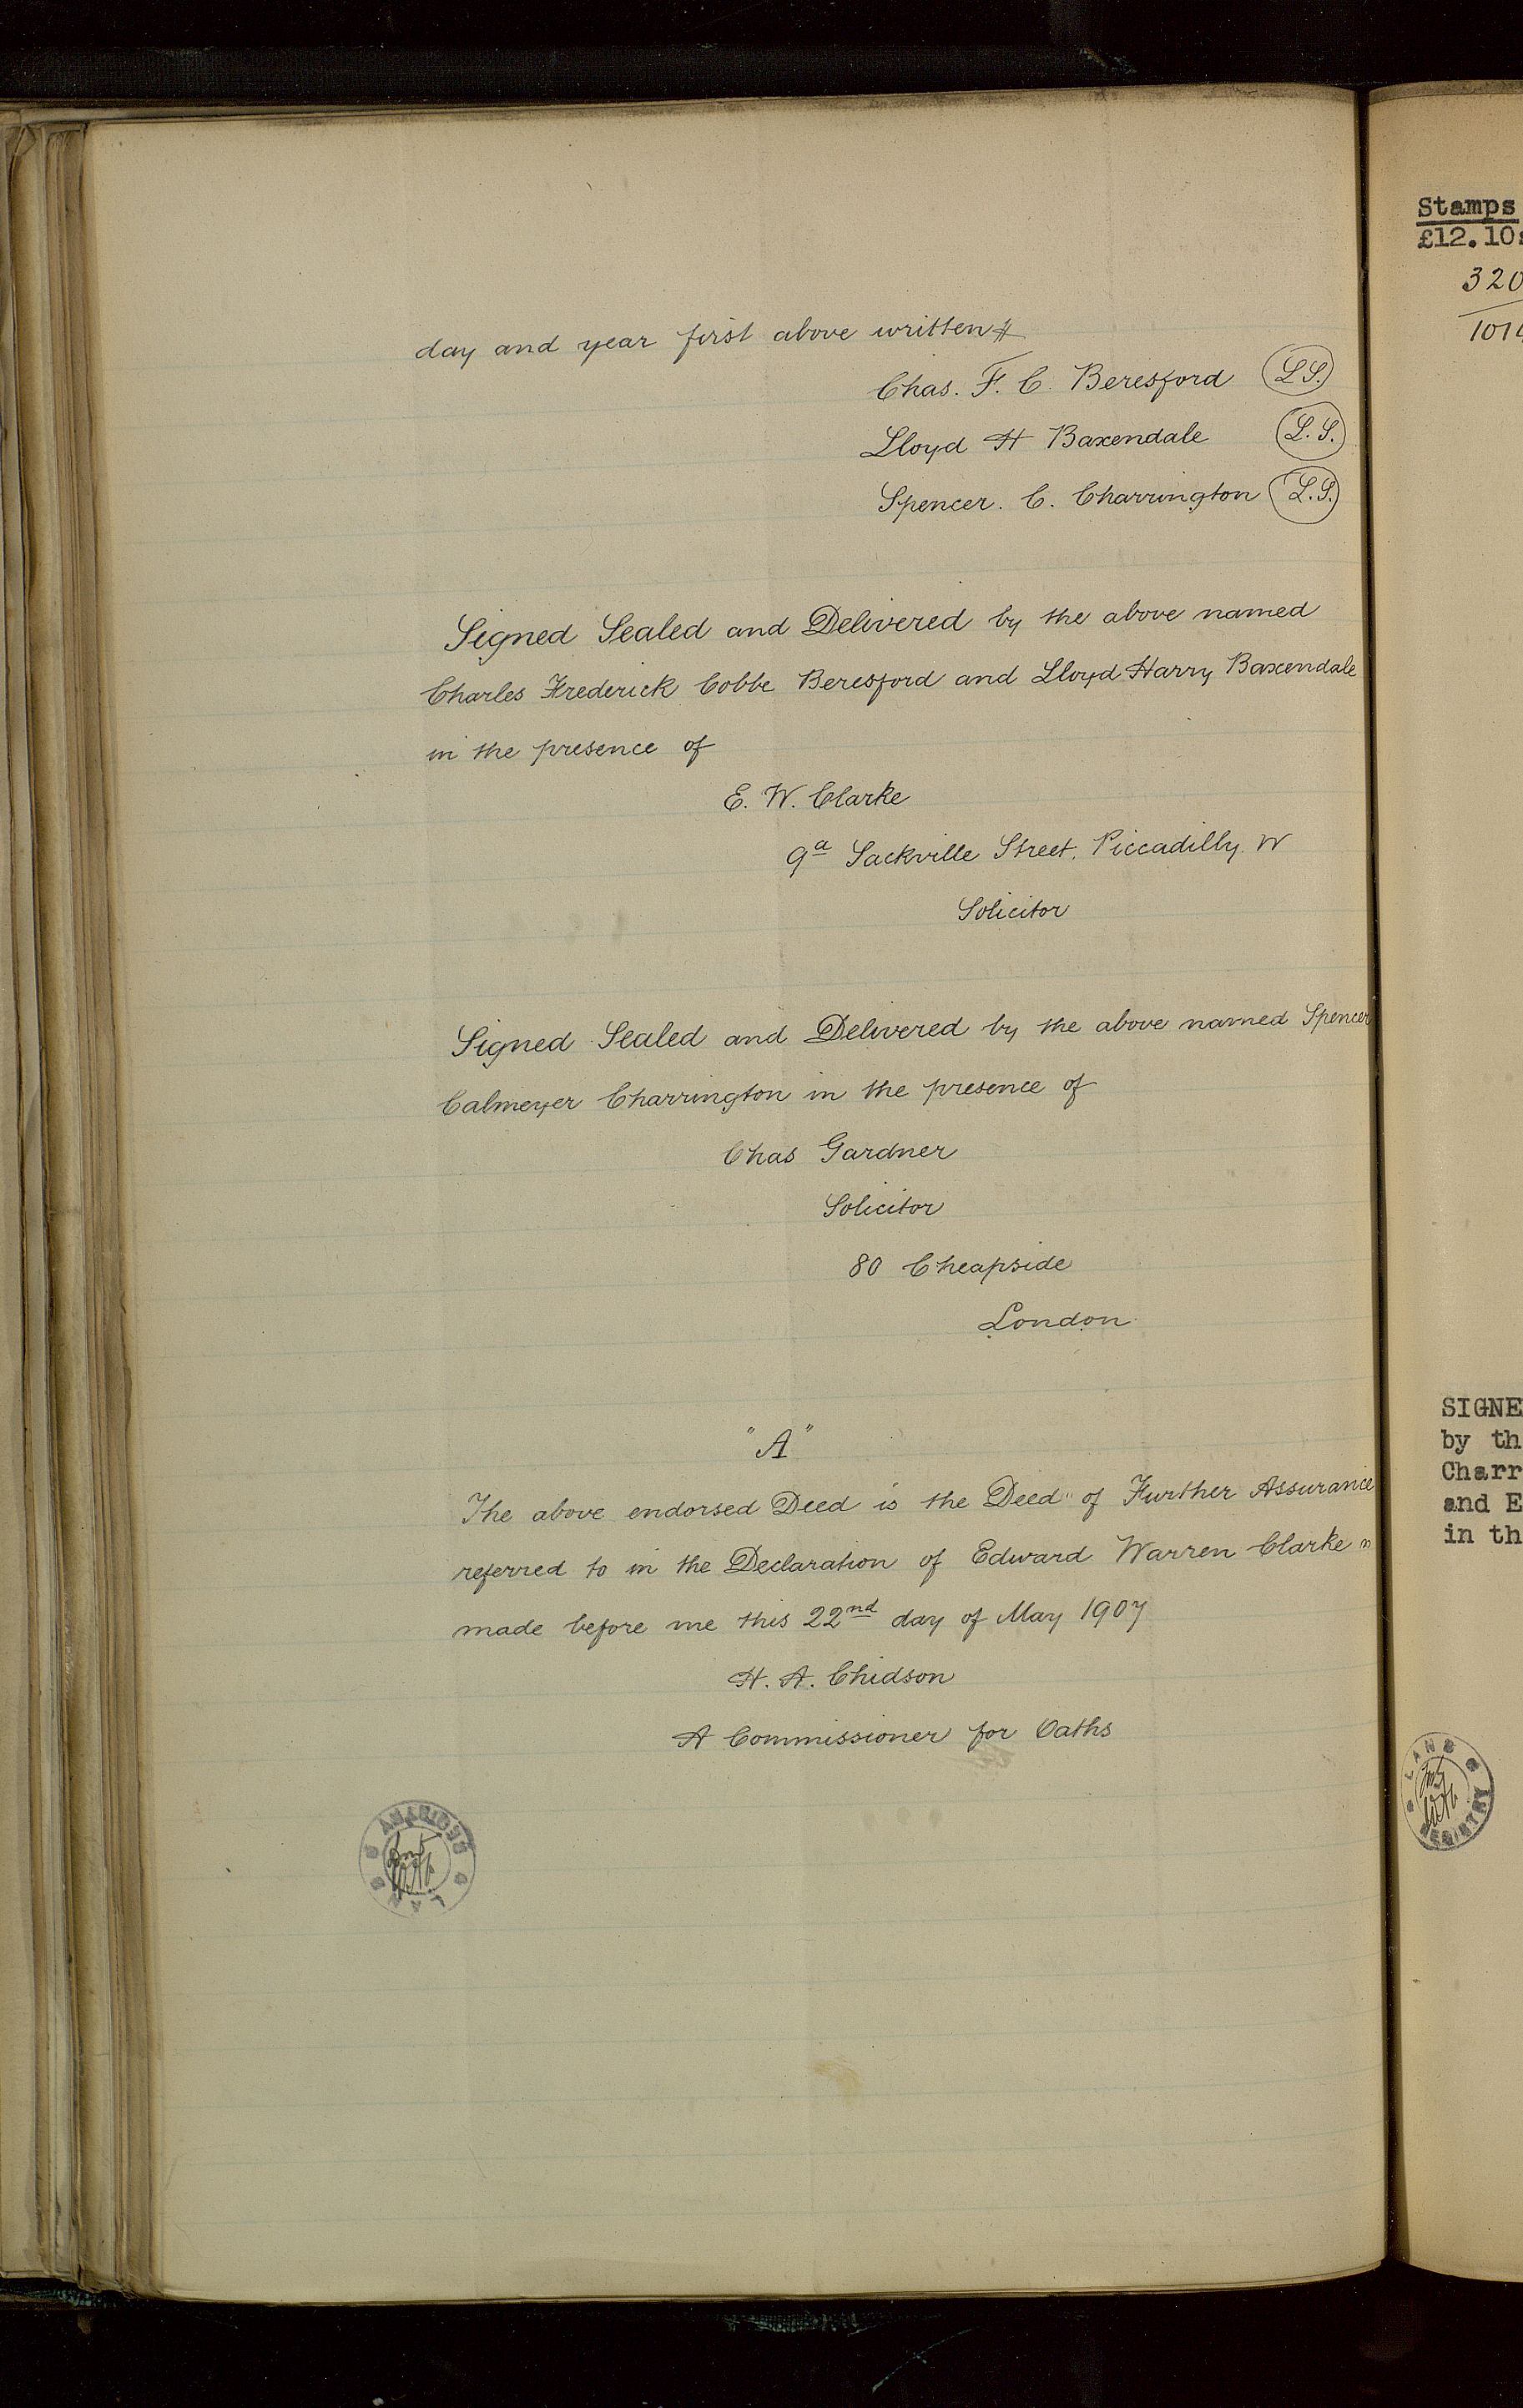 day and year first above written
Chas. F. C. Beresford (L.S.)
Lloyd H Baxendale (L.S.)
Spencer. C. Charrington (L.S.)
Signed Sealed and Delivered by the above named
Charles Frederick Cobbe Beresford and Lloyd Harry Baxendale
in the presence of
E. W. Clarke
9a Sackville Street, Piccadilly. W
Solicitor
Signed Sealed and Delivered by the above named Spencer
Calmeyer Charrington in the presence of
Chas Gardner
Solicitor
80 Cheapside
London
"A"
The above endorsed Deed is the Deed of Further Assurance
referred to in the Declaration of Edward Warren Clarke
made before me this 22nd day of May 1907
H. A. Chidson
A Commissioner for Oaths
LAND REGISTRY
Stamps
£12.10
320
101
SIGNE
by th
Charr
and E
in th
LAND REGISTRY